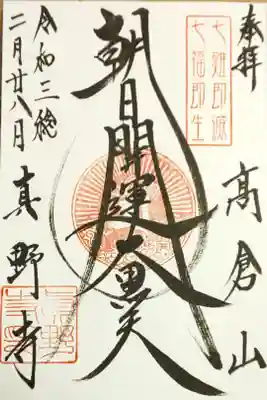 奉拝
七難即滅
七福即生
高倉山
朝日開運大黒天
令和三稔
二月廿八日
真野寺